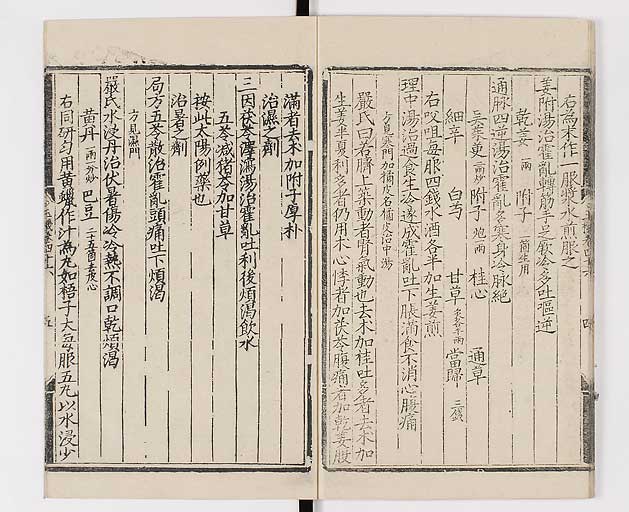 右為末作一服漿水煎服之
姜附湯治霍亂轉筋手足厥冷多吐嘔逆
乾姜一兩 附子一箇生用
通脉四逆湯治霍亂多寒身冷脉絕
吳茱萸二兩炒 附子炮一兩 桂心 通草
細辛 白芍 甘草各半兩 當歸三錢
右㕮咀每服四錢水酒各半加生姜煎
理中湯治過食生冷遂成霍亂吐下脹滿食不消心腹痛
方見寒門加橘皮名橘皮治中湯
嚴氏曰若臍上築動者腎氣動也去朮加桂吐多者去朮加
生姜半夏利多者仍用朮心悸者加茯苓腹痛者加乾姜腹
滿者去朮加附子厚朴
治濕之劑
三因茯苓澤瀉湯治霍亂吐利後煩渴飲水
五苓減猪苓加甘草
按此太陽例藥也
治暑之劑
局方五苓散治霍亂頭痛吐下煩渴
方見濕門
嚴氏水浸丹治伏暑傷冷冷熱不調口乾煩渴
黃丹一兩二分炒 巴豆二十五箇去皮心
右同研勻用黃蠟作汁為丸如梧子大每服五丸以水浸少